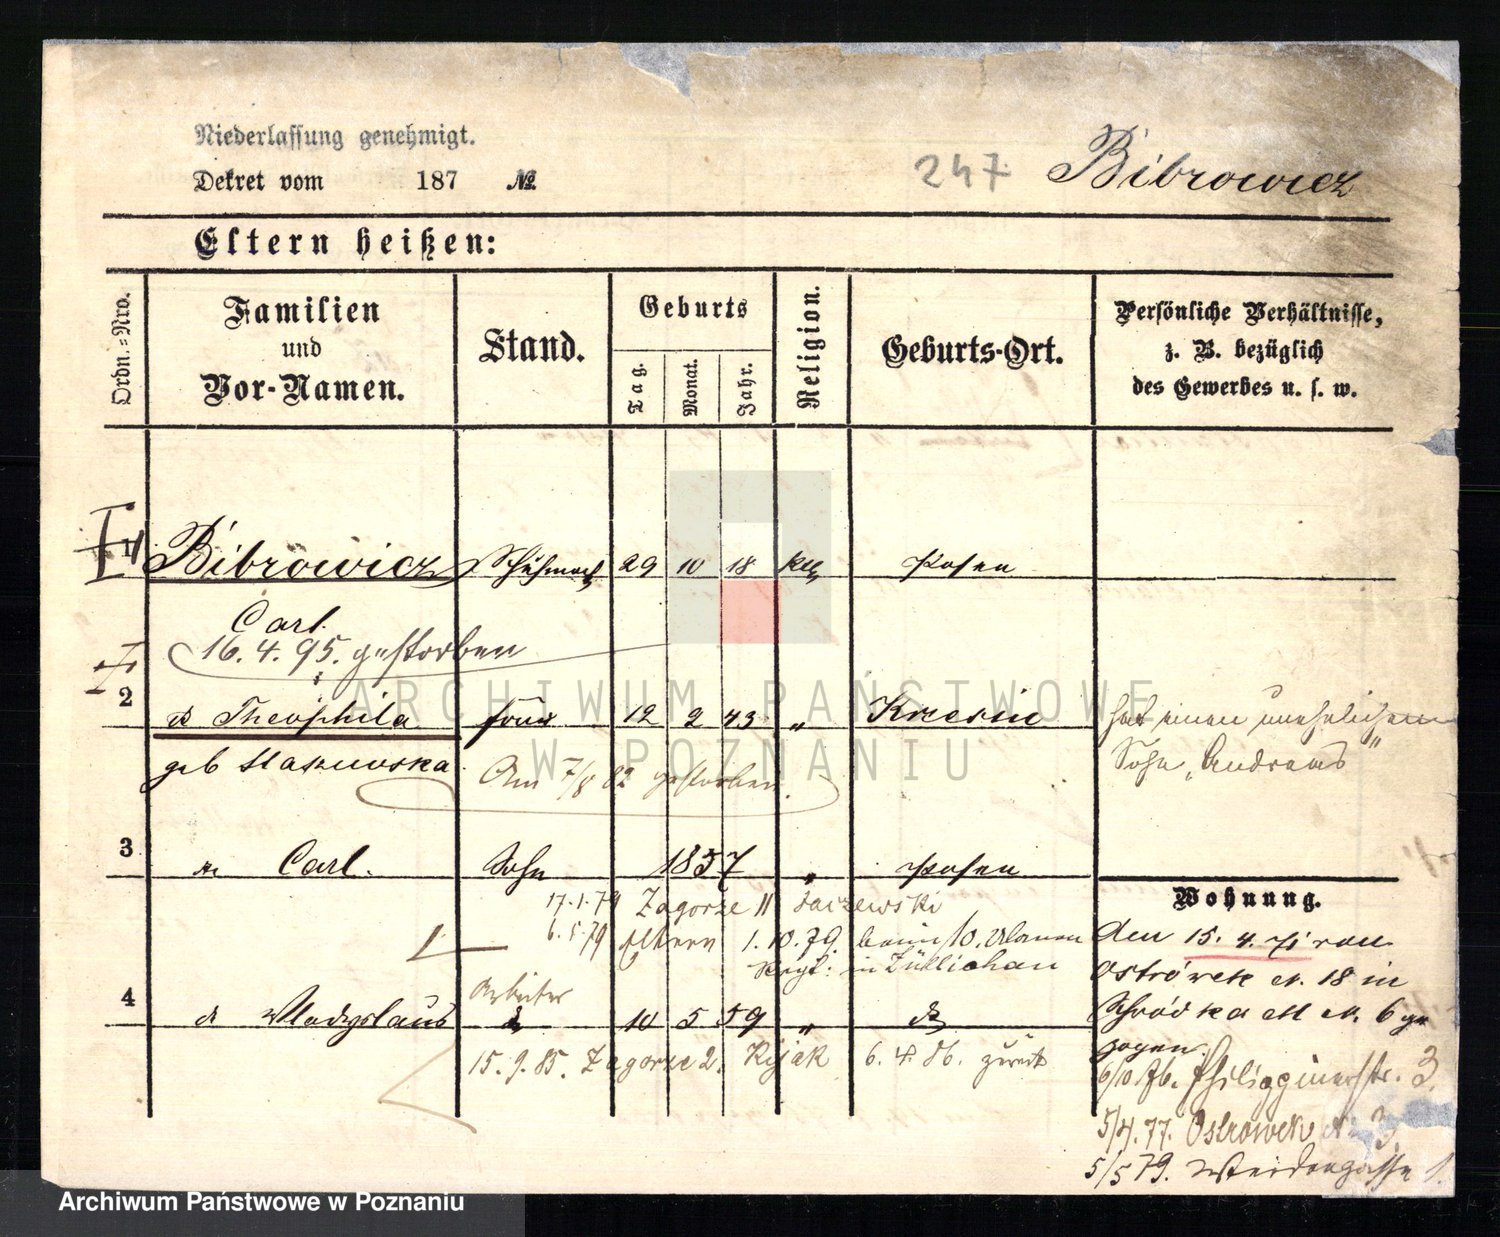 Niederlassung genehmigt.
Dekret vom 187 №
247 Bibrowicz
Eltern heißen:
Ordn.-Nro.
Familien und Vor-Namen.
Stand.
Geburts
Tag. Monat. Jahr.
Religion.
Geburts-Ort.
Persönliche Verhältnisse,
z. B. bezüglich
des Gewerbes u. s. w.
1 Bibrowicz Schuhmach 29 10 18 kth Posen
Carl.
16. 4. 95. gestorben
2 Theophila Frau 12 2 43 " Krerin
geb Am 7/8 82 gestorben.
hat einen unehelichen
Sohn „Andreas"
3 Carl. Sohn 1857 " Posen
17.1.79 Zagorze 11
6.5.79 Eltern 1.10.79. beim 10. Ulanen
Regt: in Züllichau
Arbeiter
4 Wladyslaus 10 5 59 "
15.9.85. Zagorze 2. Kijak 6.4.86. zurück
Wohnung.
den 15. 4. 71 von
Ostrówek N. 18 in
Schrodka M N. 6 ge
zogen.
6/10.76. Philippinerstr. 3.
5/4.77. Ostrowek N. 3.
5/5 79. Weidengasse 1.
ARCHIWUM PAŃSTWOWE
W POZNANIU
Archiwum Państwowe w Poznaniu